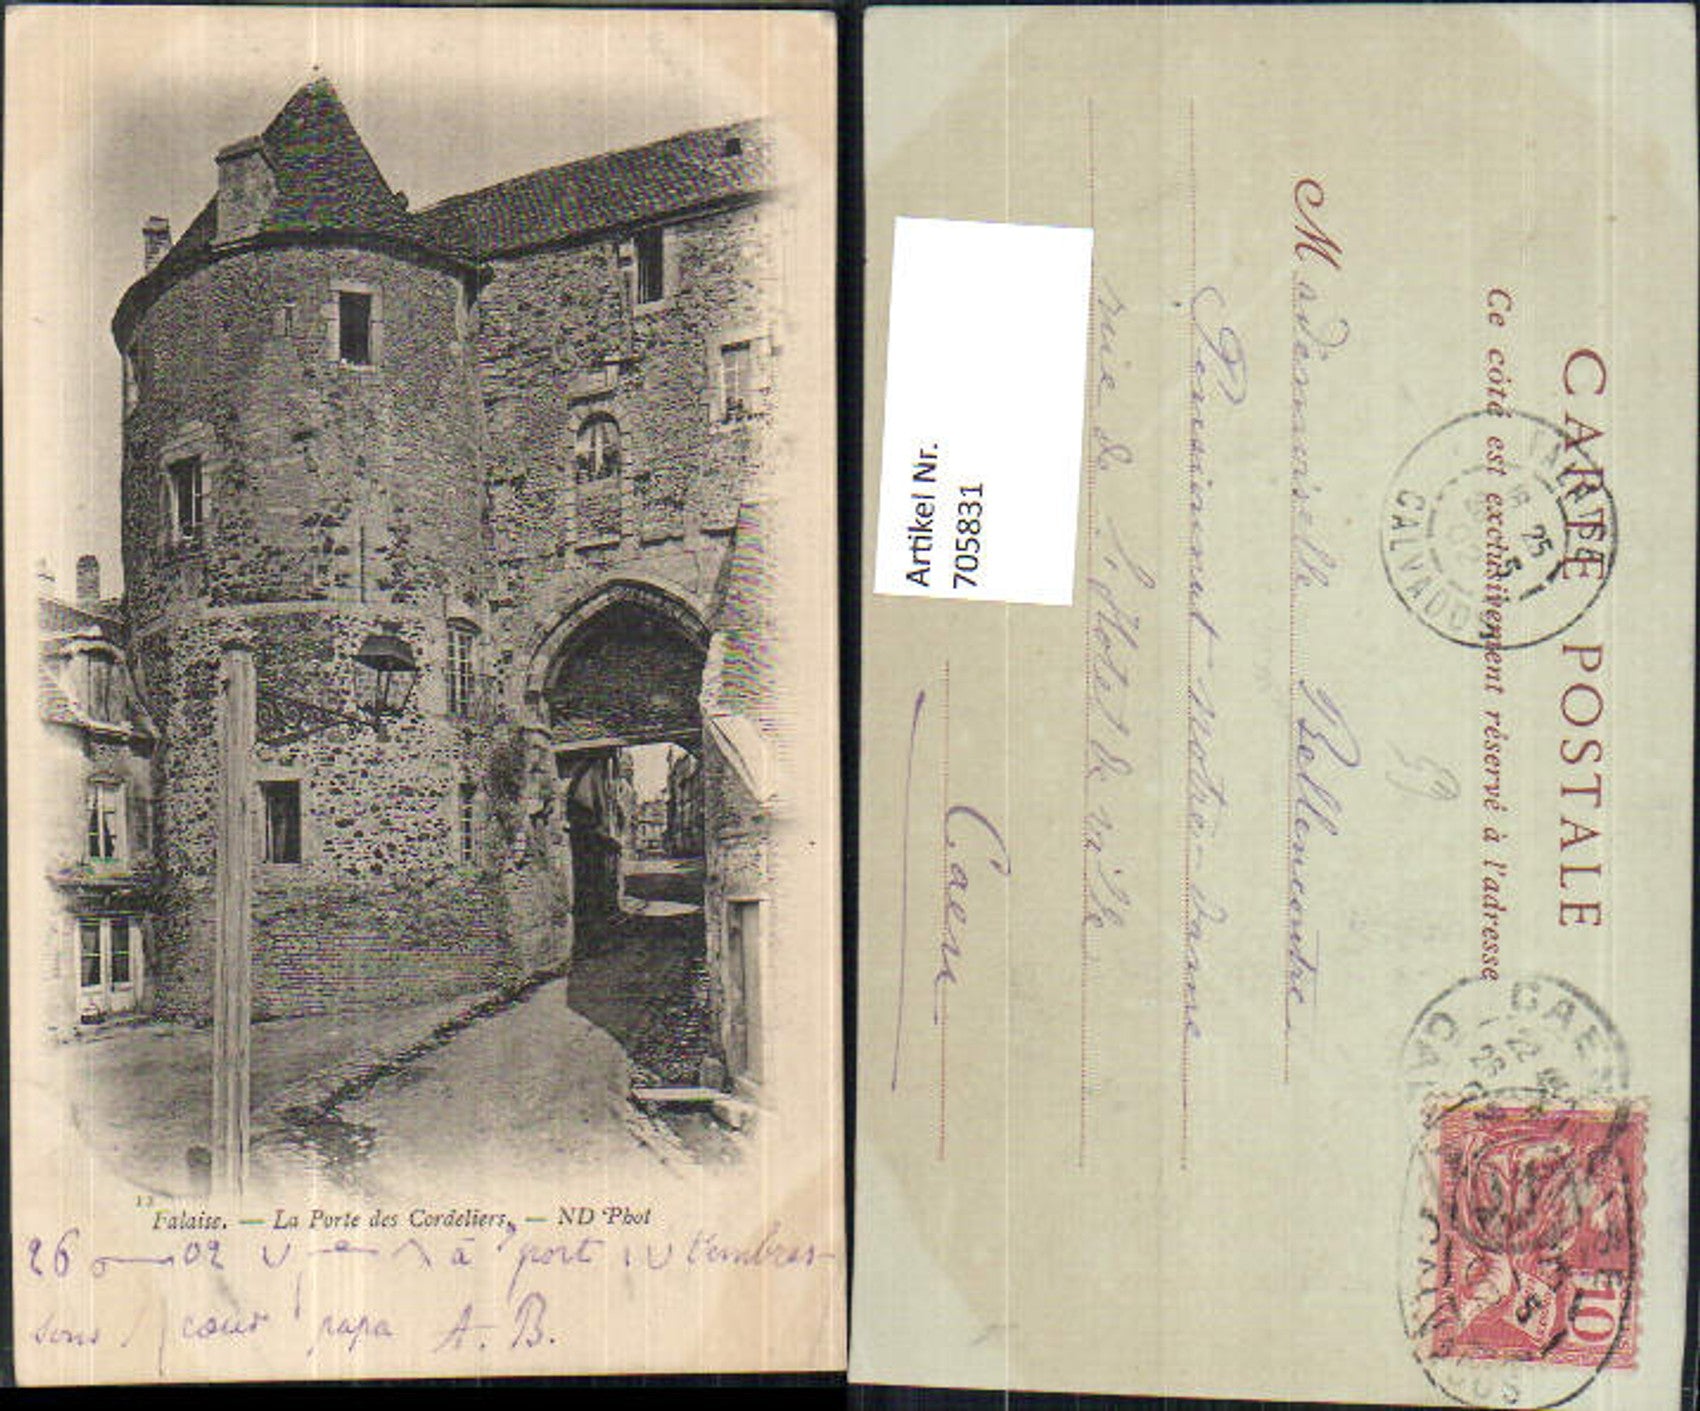 13
Falaise. — La Porte des Cordeliers. — ND Phot
26 02 à port timbres
sous cour papa A. B.
CARTE POSTALE
Ce côté est exclusivement réservé à l'adresse
Mademoiselle Bellencontre
Pensionnat notre-dame
rue de l'Hotel de ville
Caen
Artikel Nr.
705831
FALAISE
18
25
5
02
CALVADOS
CAEN
22
26
10
5
CALVADOS